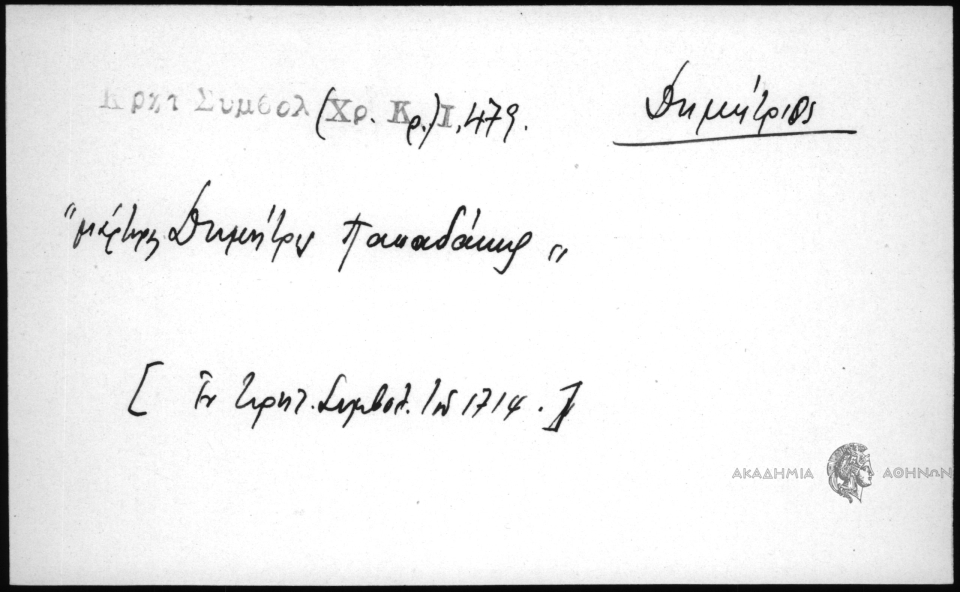 Κρητ Συμβολ (Χρ. Κρ.) Ι, 479. Δημήτριος
"μάρτυς Δημήτρις Παπαδάκης"
[ Ἐν Κρητ. Συμβολ. τοῦ 1714. ]
ΑΚΑΔΗΜΙΑ ΑΘΗΝΩΝ